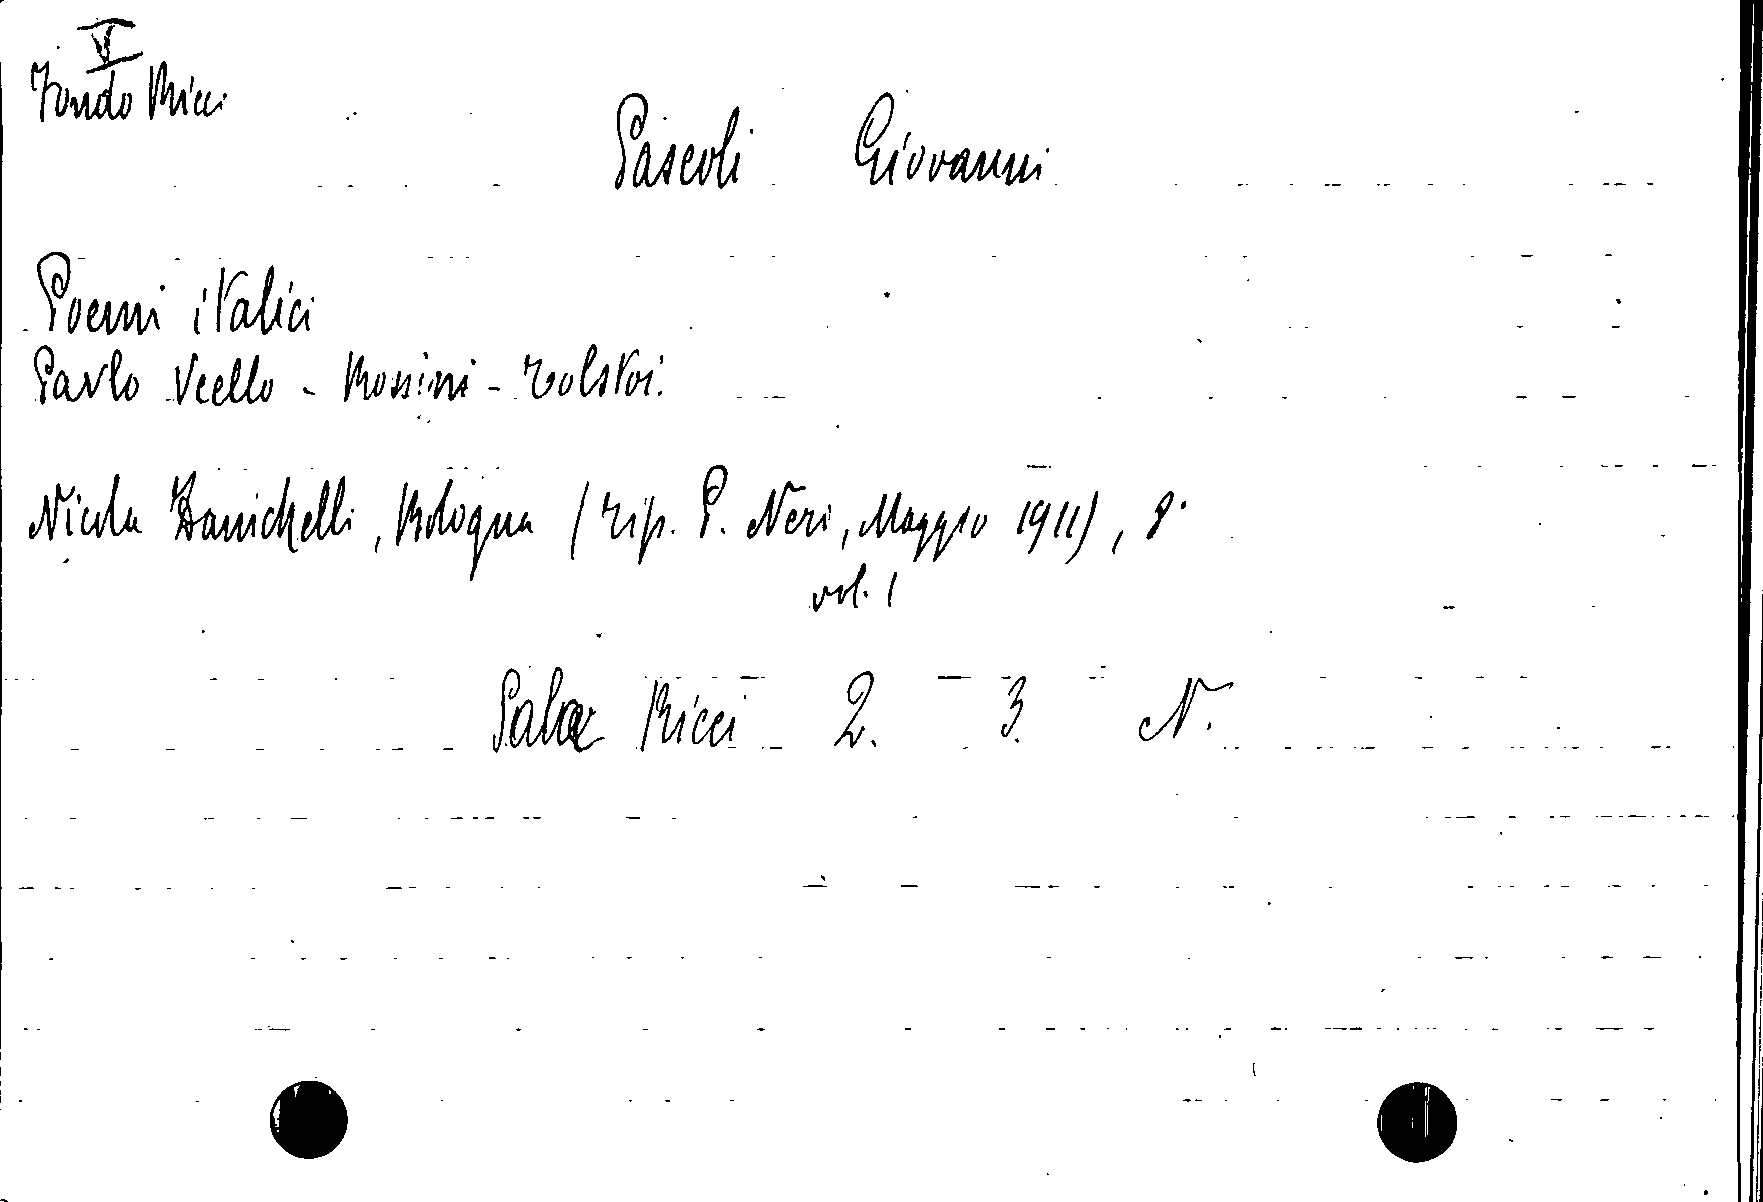 VI
Fondo Ricci
Pascoli Giovanni
Poemi italici
Paolo Ucello - Rossini - Tolstoi.
Nicola Zanichelli, Bologna (tip. P. Neri, Maggio 1911), 8°
vol. 1
Sala Ricci 2. 3. N.